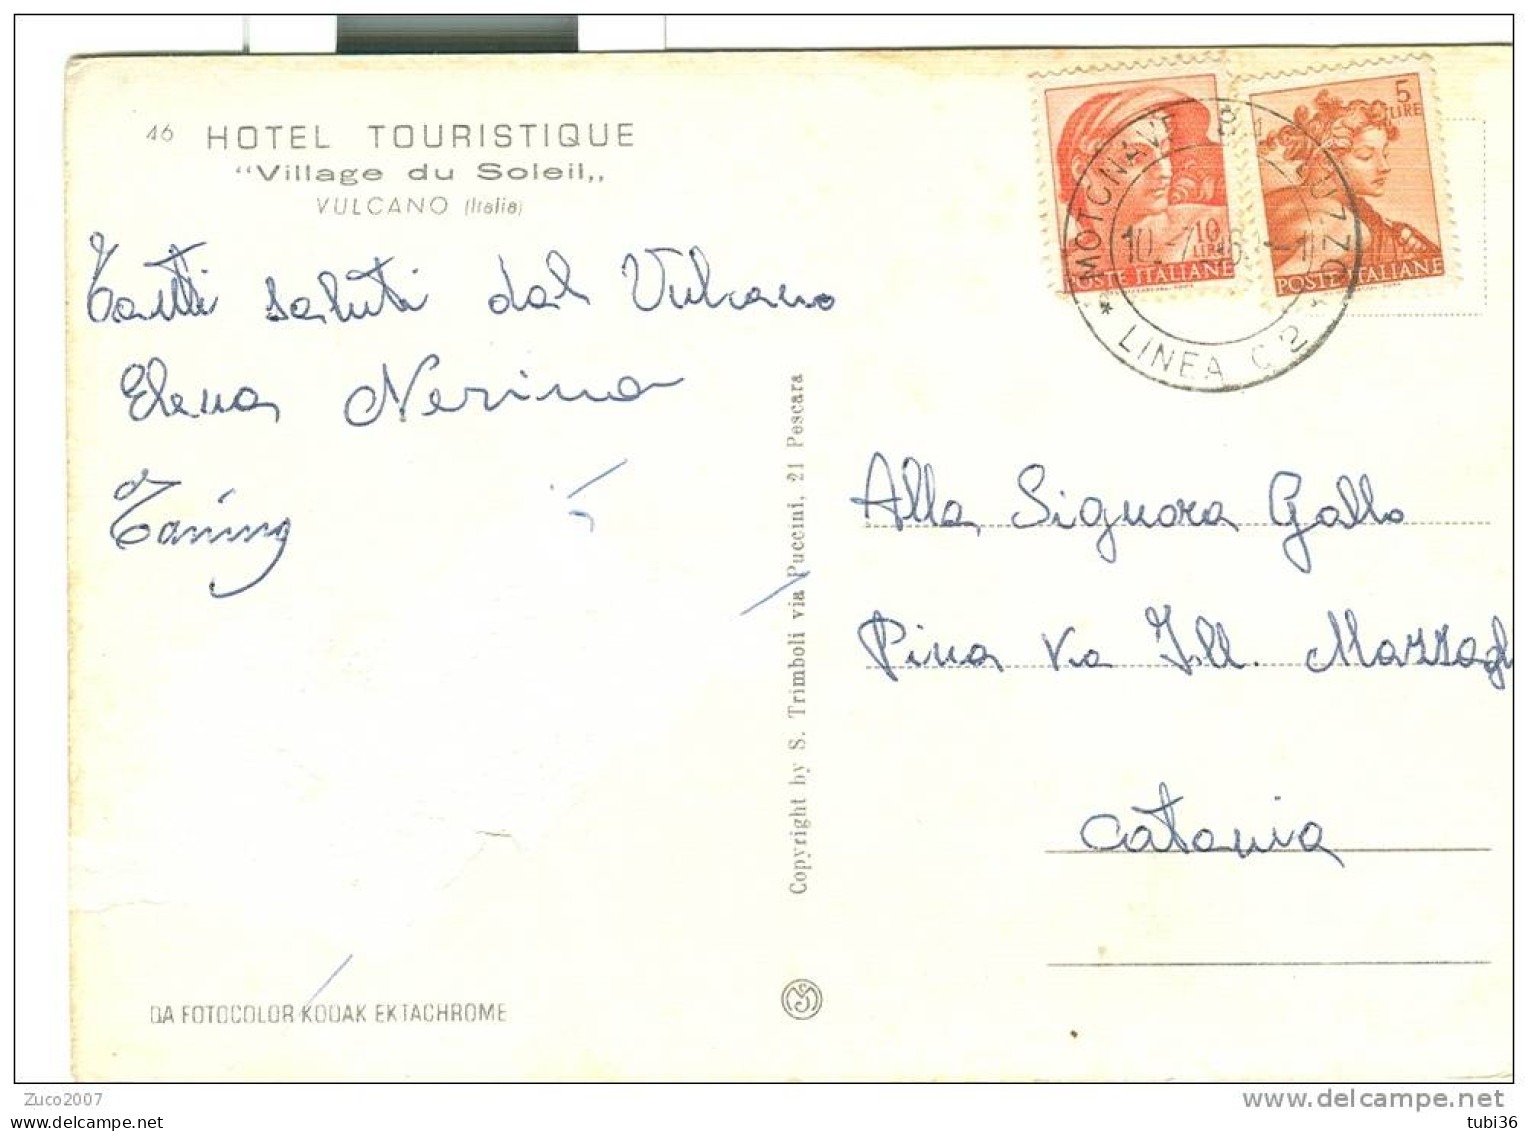 46 HOTEL TOURISTIQUE
"Village du Soleil„
VULCANO (Italia)
Tanti saluti dal Vulcano
Elena Nerina
Tanino
DA FOTOCOLOR KODAK EKTACHROME
Copyright by S. Trimboli via Puccini, 21 Pescara
10 LIRE
POSTE ITALIANE
5 LIRE
POSTE ITALIANE
MOTONAVE
* LINEA C 2 *
10.-7.
Alla Signora Gallo
Pina Via Ill.
Catania
Zuco2007
www.delcampe.net
myowncollection
tubi36